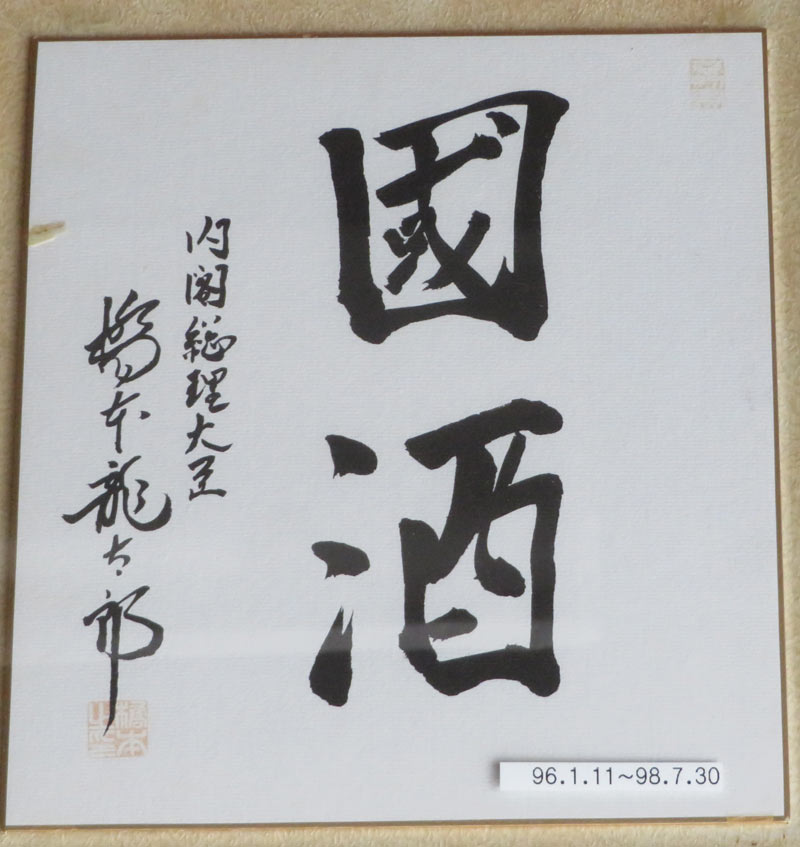 國酒
内閣総理大臣
橋本龍太郎
96.1.11~98.7.30